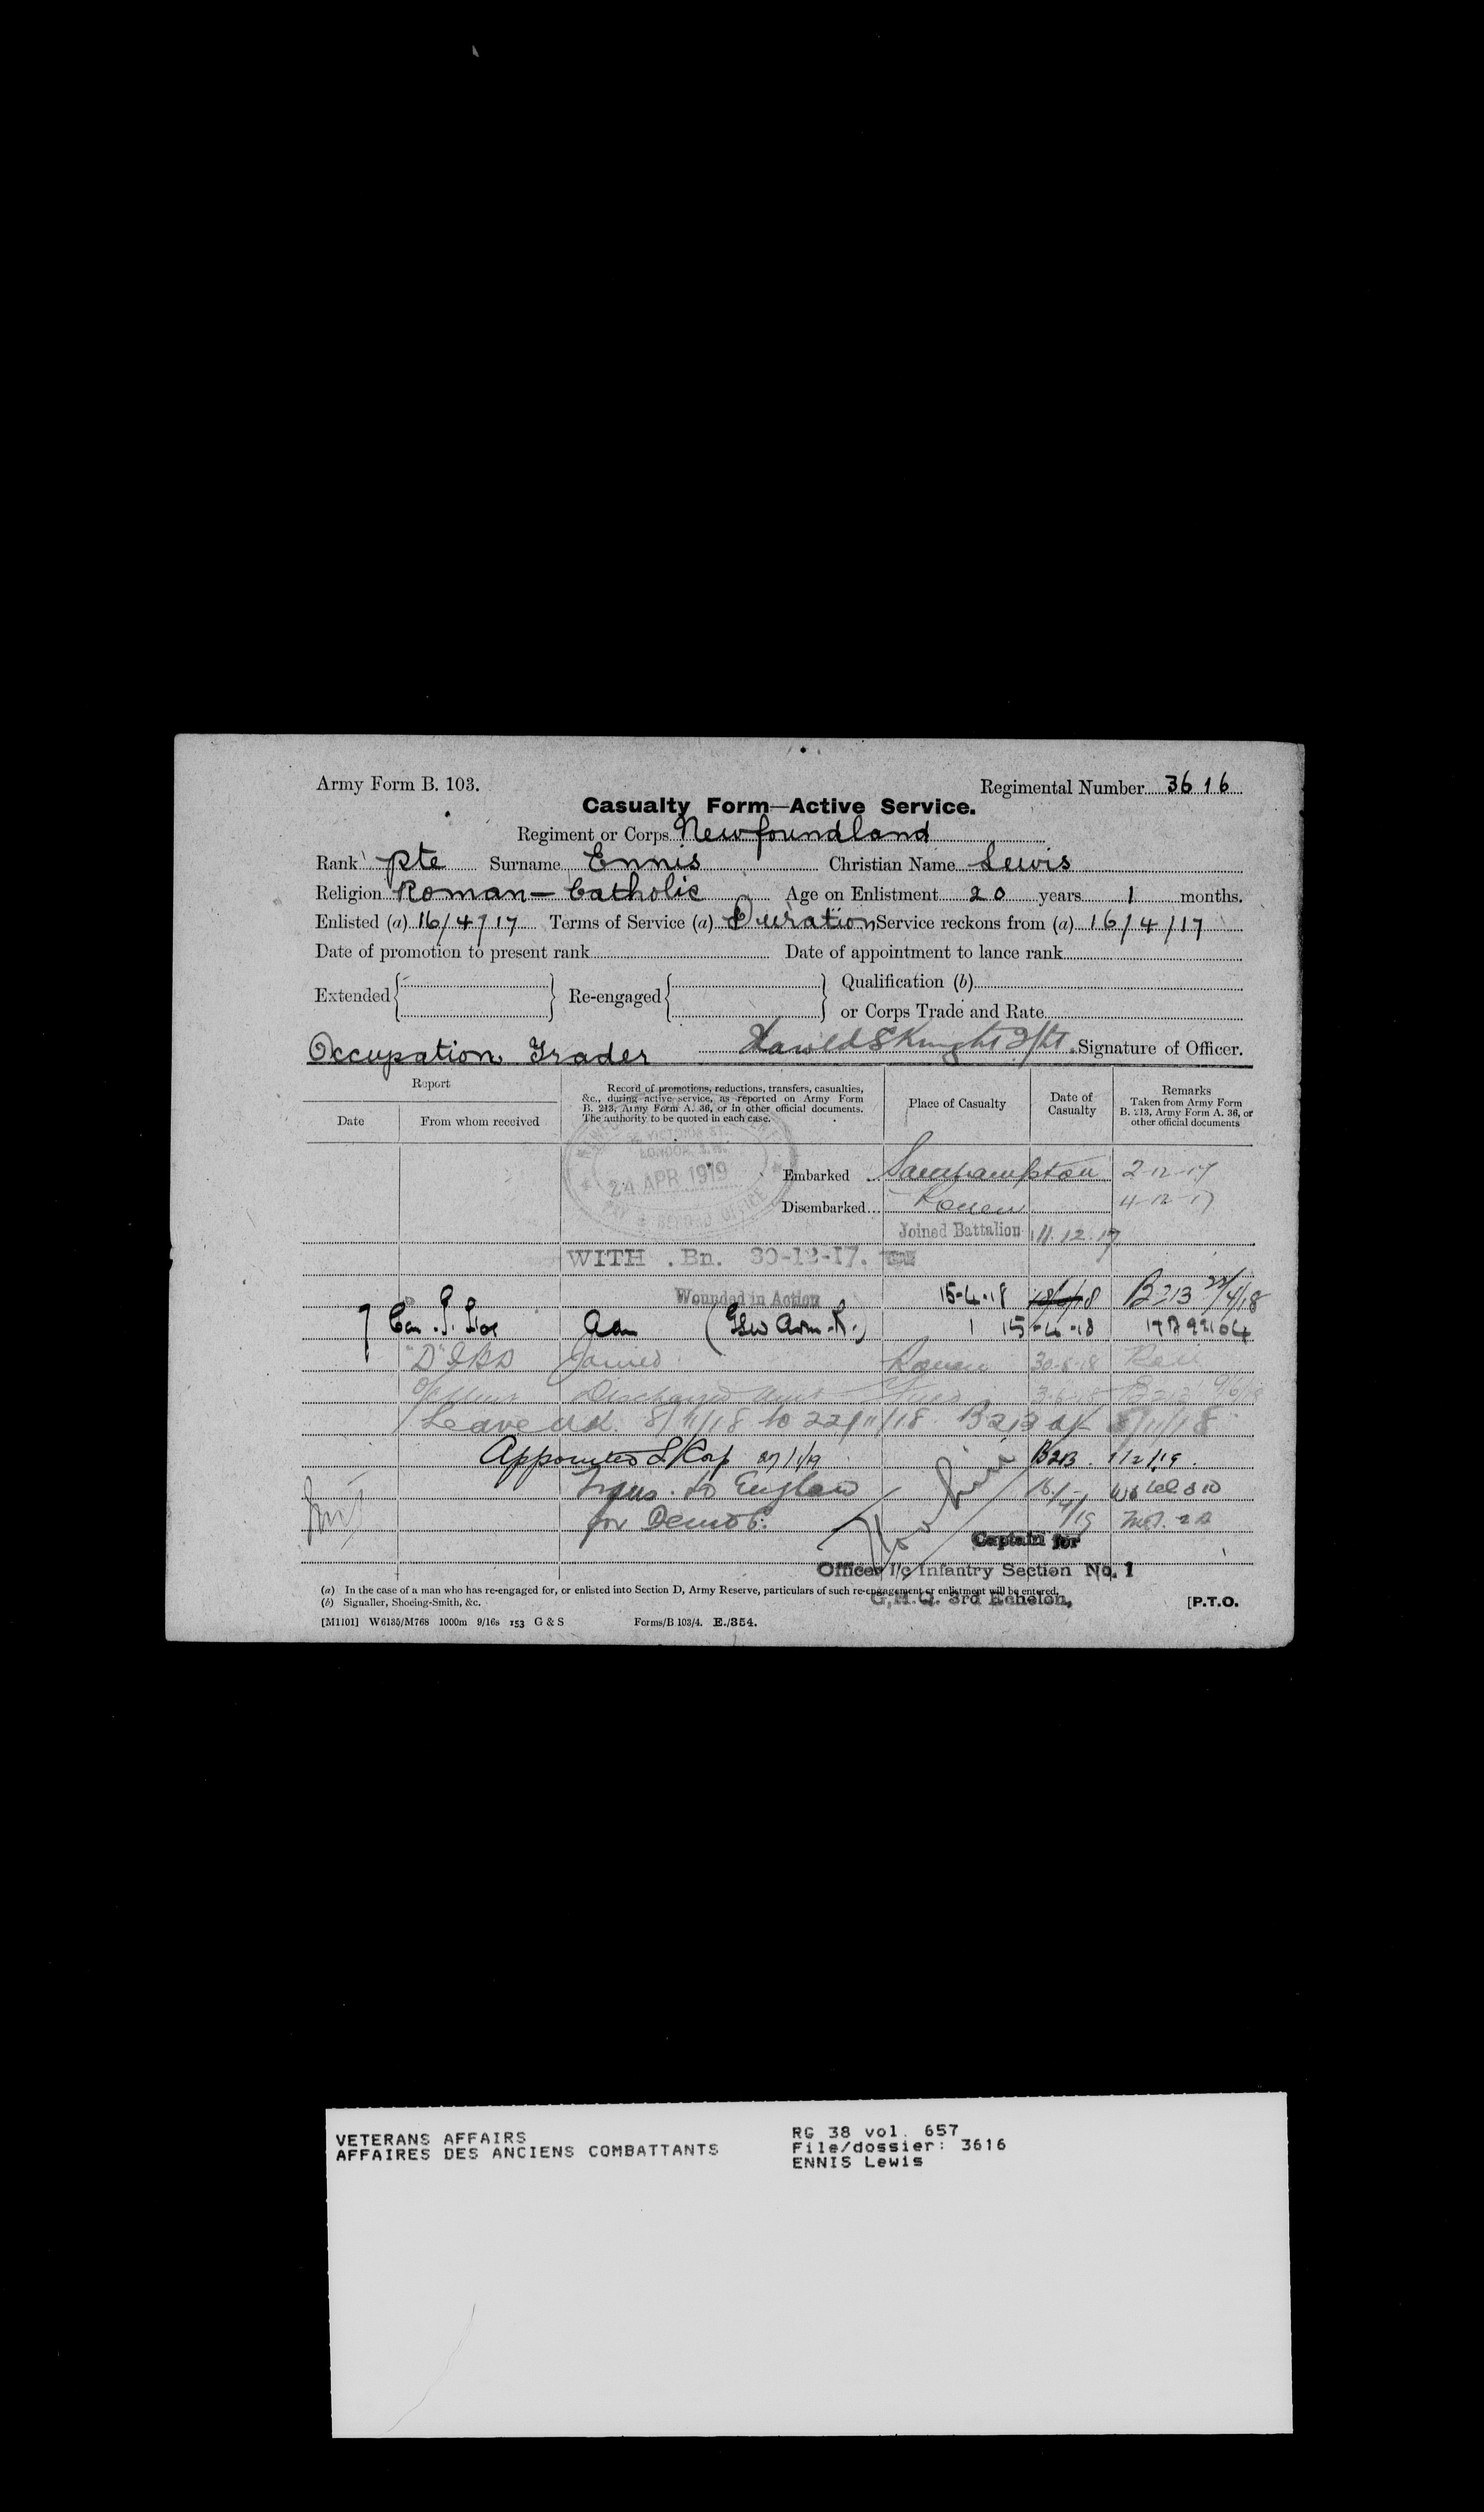 Army Form B. 103.
Regimental Number 3616
Casualty Form—Active Service.
Regiment or Corps Newfoundland
Rank Pte Surname Ennis Christian Name Lewis
Religion Roman-Catholic Age on Enlistment 20 years 1 months.
Enlisted (a) 16/4/17 Terms of Service (a) Duration Service reckons from (a) 16/4/17
Date of promotion to present rank Date of appointment to lance rank
Extended Re-engaged Qualification (b)
or Corps Trade and Rate
Occupation Trader Harold S Knight 2/Lt Signature of Officer.
Report
Date
From whom received
Record of promotions, reductions, transfers, casualties,
&c., during active service, as reported on Army Form
B. 213, Army Form A. 36, or in other official documents.
The authority to be quoted in each case.
Place of Casualty
Date of
Casualty
Remarks
Taken from Army Form
B. 213, Army Form A. 36, or
other official documents
VICTORIA ST.
LONDON, S.W.
24 APR 1919
PAY & RECORD OFFICE
Embarked ... Southampton 2-12-17
Disembarked... Rouen 4-12-17
Joined Battalion 11.12.17
WITH . Bn. 30-12-17.
Wounded in Action 15-4-18 B213 /4/18
Adm (GSW Arm. R.) 15-4-18
"D" IBD Joined Rouen 30-8-18
Discharged Unit B213
Leave U.K. 8/11/18 to 22/11/18 B213 8/11/18
Appointed L/Corp 27/1/19 B213. 1/2/19.
Trans. to England
for Demob: 4/19
Captain for
Officer i/c Infantry Section No. 1
G.H.Q. 3rd Echelon.
(a) In the case of a man who has re-engaged for, or enlisted into Section D, Army Reserve, particulars of such re-engagement or enlistment will be entered.
(b) Signaller, Shoeing-Smith, &c.
[P.T.O.
[M1101] W6135/M768 1000m 9/16s 153 G & S Forms/B 103/4. E./354.
VETERANS AFFAIRS
AFFAIRES DES ANCIENS COMBATTANTS
RG 38 vol. 657
File/dossier: 3616
ENNIS Lewis